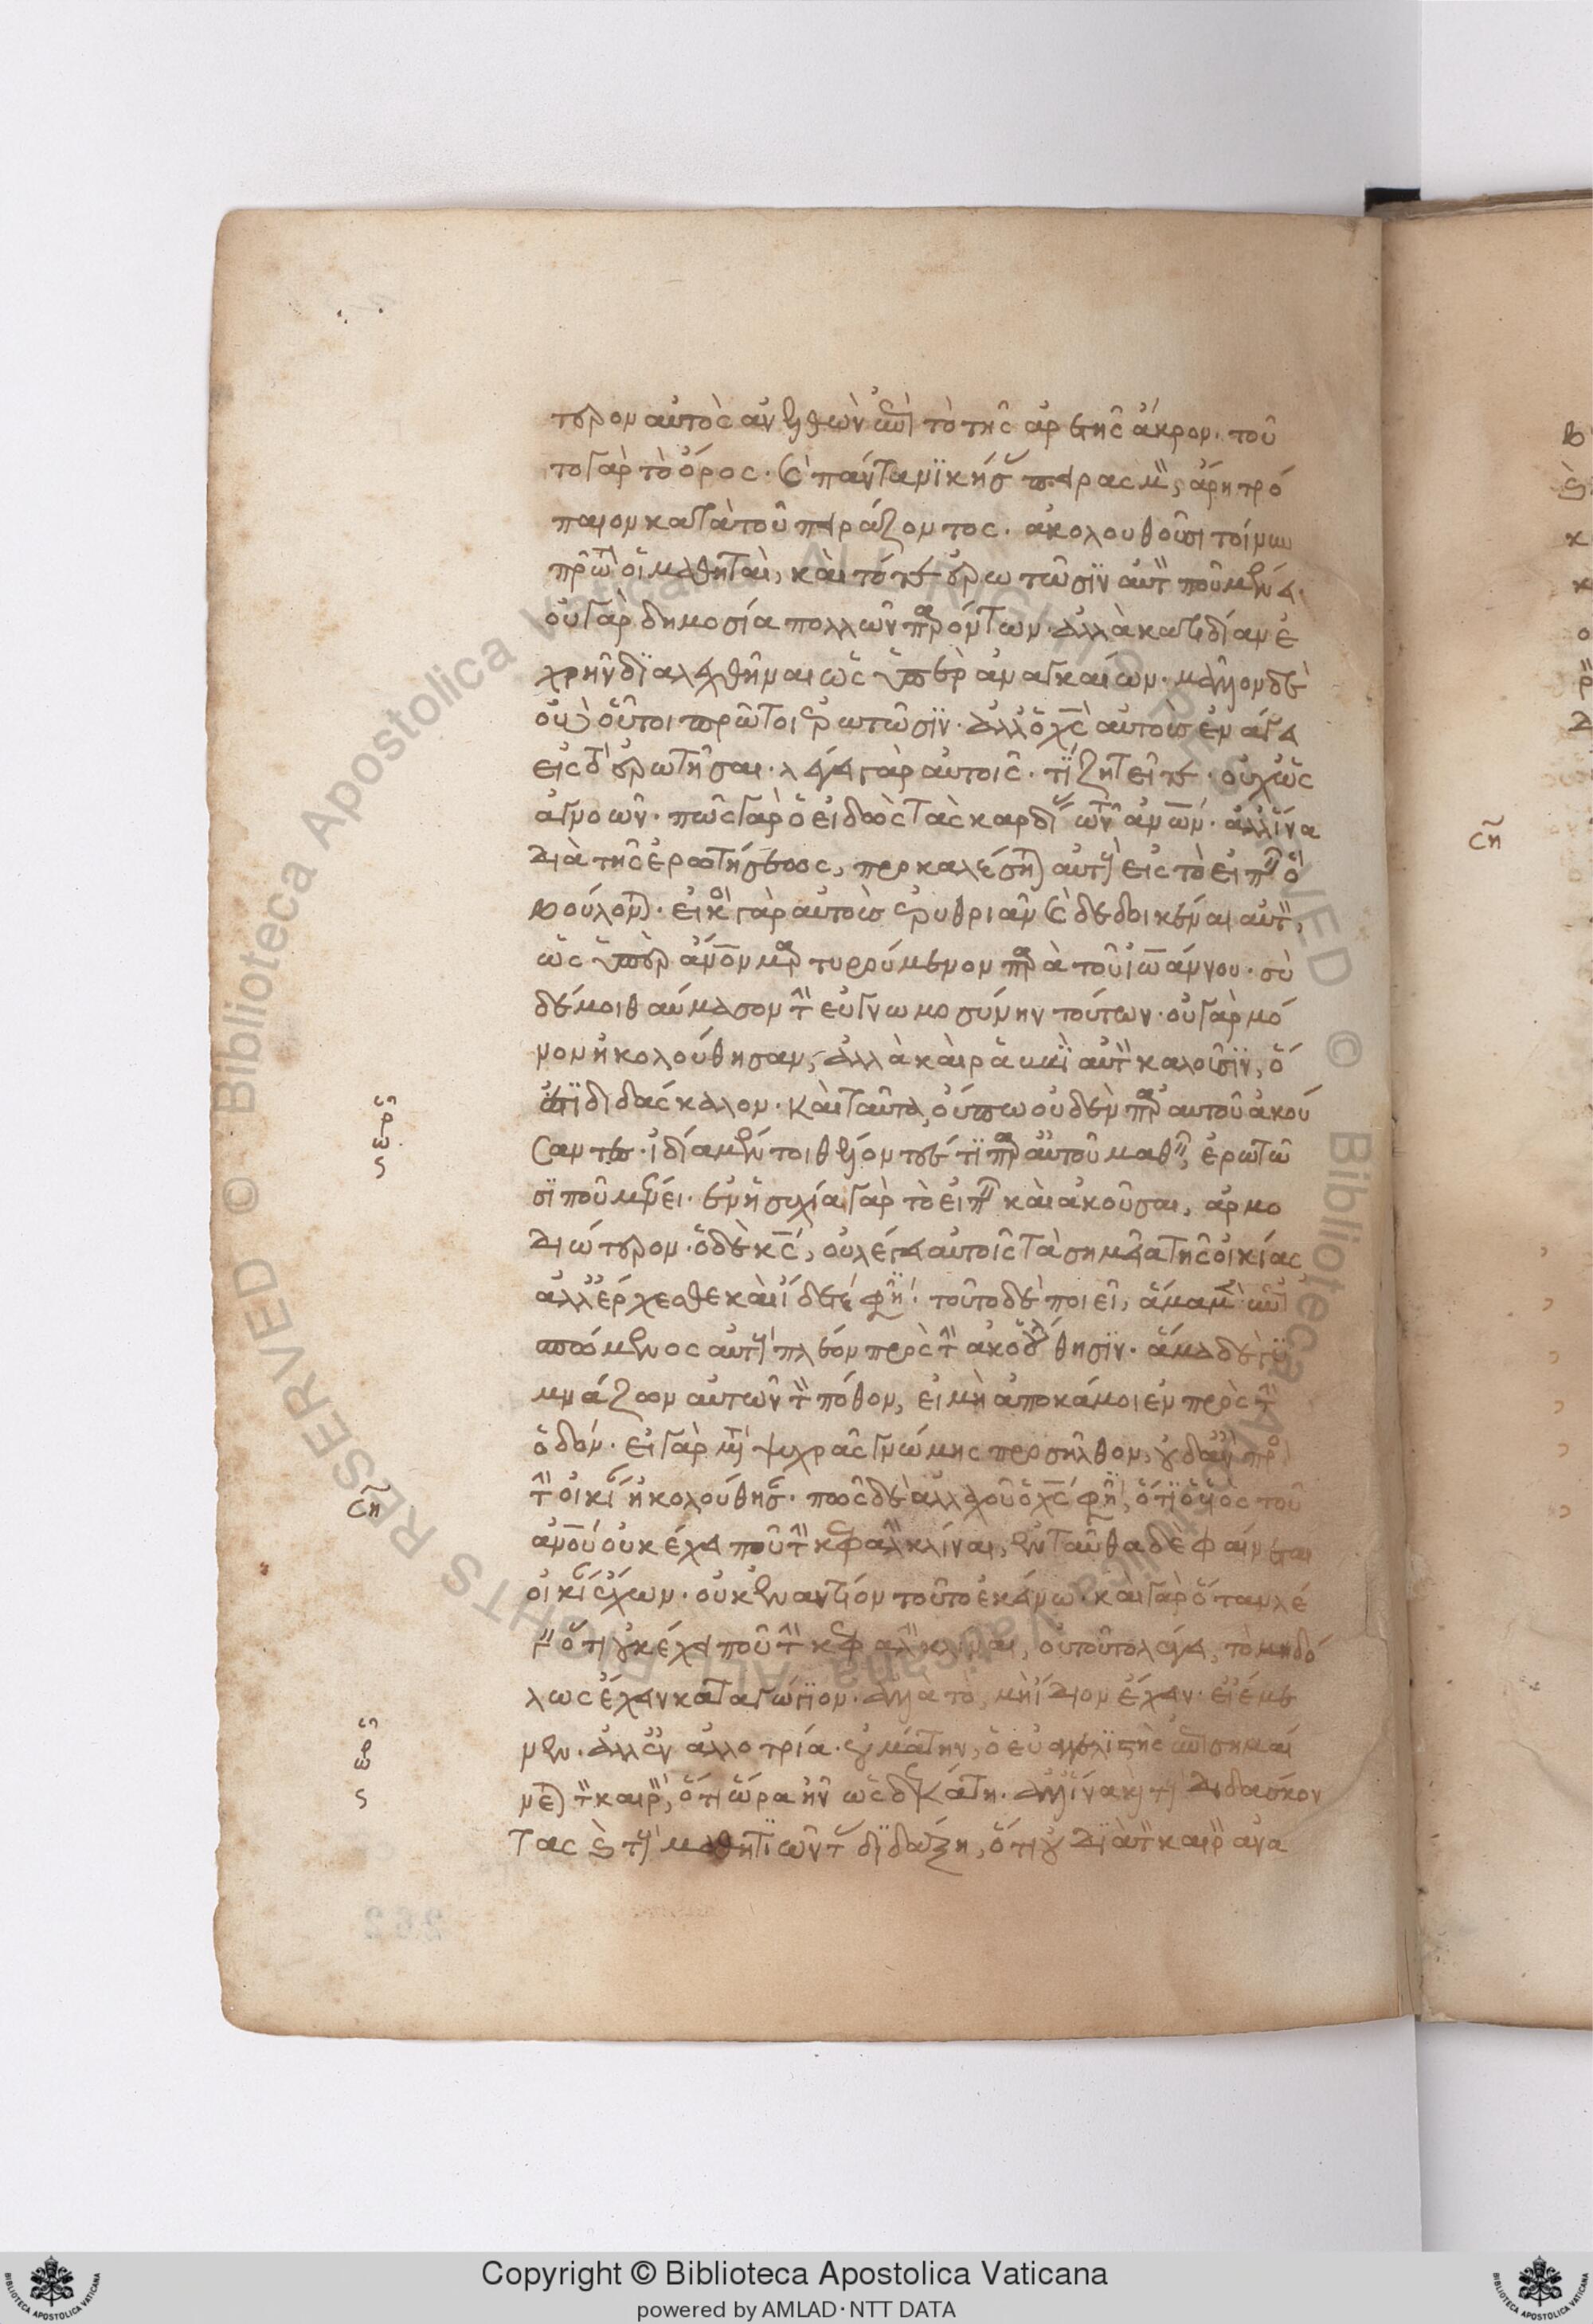 τερον αὐτὸς ἀνελθὼν ἐπὶ τὸ τῆς ἀρετῆς ἄκρον. τοῦ
το γὰρ τὸ ὄρος. καὶ πάντα νικήσας πειρασμὸν, ἄρῃ τρό
παιον κατὰ τοῦ πειράζοντος. ἀκολουθοῦσι τοίνυν
πρῶτον οἱ μαθηταὶ, καὶ τότε ἐρωτῶσιν αὐτὸν ποῦ μένει.
οὐ γὰρ δημοσία πολλῶν παρόντων. ἀλλὰ κατιδίαν ἐ
χρῆν διαλεχθῆναι ὡς ὑπὲρ ἀναγκαίων. μᾶλλον δὲ
οὐχ οὗτοι πρῶτοι ἐρωτῶσιν. ἀλλ ὁ χς αὐτοὺς ἐνάγει
εἰς τὸ ἐρωτῆσαι. λέγει γὰρ αὐτοῖς. τί ζητεῖτε. οὐχ ὡς
ἀγνοῶν. πῶς γὰρ ὁ εἰδὼς τὰς καρδίας τῶν ανων. ἀλλ ἵνα
διὰ τῆς ἐρωτήσεως, προκαλέσηται αὐτοὺς εἰς τὸ εἰπεῖν ὃ
βούλονται. εἰκὸς γὰρ αὐτοὺς ἐρυθριᾶν καὶ δεδοικέναι αὐτὸν,
ὡς ὑπὲρ ανον μαρτυρούμενον παρὰ τοῦ ιωάννου. σὺ
δέ μοι θαύμασον τὴν εὐγνωμοσύνην τούτων. οὐ γὰρ μό
νον ἠκολούθησαν, ἀλλὰ καὶ ῥαββὶ αὐτὸν καλοῦσιν, ὅ
ἐστι διδάσκαλον. καὶ ταῦτα, οὔπω οὐδὲν παρ αὐτοῦ ἀκού
σαντες. ἰδία μέντοι θέλοντές τι παρ αὐτοῦ μαθεῖν, ἐρωτῶ
σι ποῦ μένει. ἐν ἡσυχία γὰρ τὸ εἰπεῖν καὶ ἀκοῦσαι, ἁρμο
διώτερον. ὁ δὲ κς, οὐ λέγει αὐτοῖς τὰ σημεῖα τῆς οἰκίας
ἀλλ ἔρχεσθε καὶ ἴδετε φησί. τοῦτο δὲ ποιεῖ, ἅμα μὲν ἐπι
σπώμενος αὐτοὺς πλέον πρὸς τὴν ἀκολούθησιν. ἅμα δὲ γυ
μνάζων αὐτῶν τὸν πόθον, εἰ μὴ ἀποκάμοιεν πρὸς τὴν
ὁδόν. εἰ γὰρ μετὰ ψυχρᾶς γνώμης προσῆλθον, οὐδ ἂν πρὸς
τὴν οἰκίαν ἠκολούθησαν. πῶς δὲ ἀλλαχοῦ ὁ χς φησὶν, ὅτι ὁ υἱὸς τοῦ
ανου οὐκ ἔχει ποῦ τὴν κεφαλὴν κλίναι, ἐνταῦθα δὲ φαίνεται
οἰκίαν ἔχων. οὐκ ἐναντίον τοῦτο ἐκείνω. καὶ γὰρ ὅταν λέ
γη ὅτι οὐκ ἔχει ποῦ τὴν κεφαλὴν κλίναι, οὐ τοῦτο λέγει, τὸ μηδό
λως ἔχειν καταγώγιον. ἀλλὰ τὸ, μὴ ἴδιον ἔχειν. εἰ ἔμε
νεν. ἀλλ ἐν ἀλλοτρία. οὐ μάτην, ὁ εὐαγγελιστὴς ἐπισημαί
νεται τὸν καιρὸν, ὅτι ὥρα ἦν ὡς δεκάτη. ἀλλ ἵνα καὶ τοὺς διδάσκον
τας καὶ τοὺς μαθητιῶντας διδάξη, ὅτι οὐ διὰ τὸν καιρὸν ἀνα
ἐρώ
ση
ἐρώ
ση